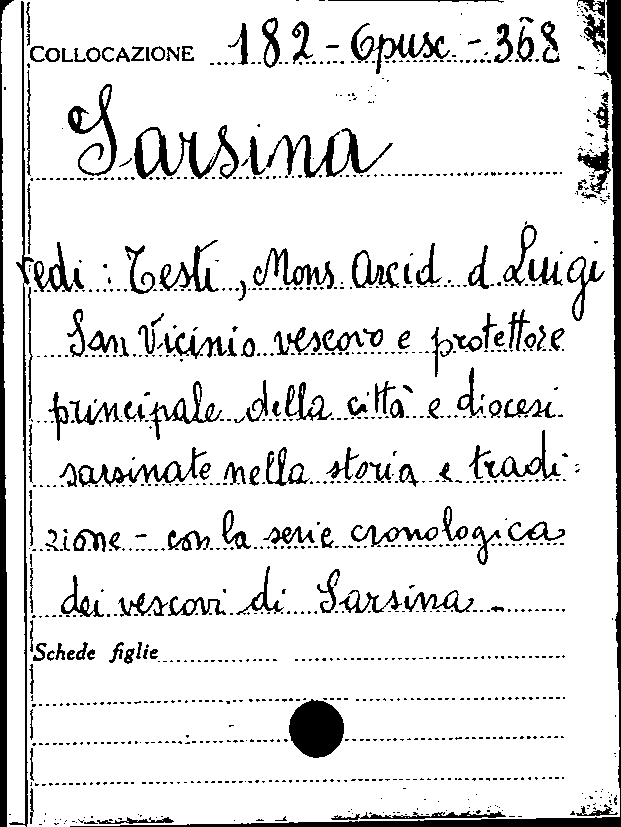 COLLOCAZIONE 182 - Opusc - 368
Sarsina
vedi : Testi, Mons Arcid d. Luigi
San Vicinio vescovo e protettore
principale della città e diocesi
sarsinate nella storia e tradi=
zione - con la serie cronologica
dei vescovi di Sarsina -
Schede figlie